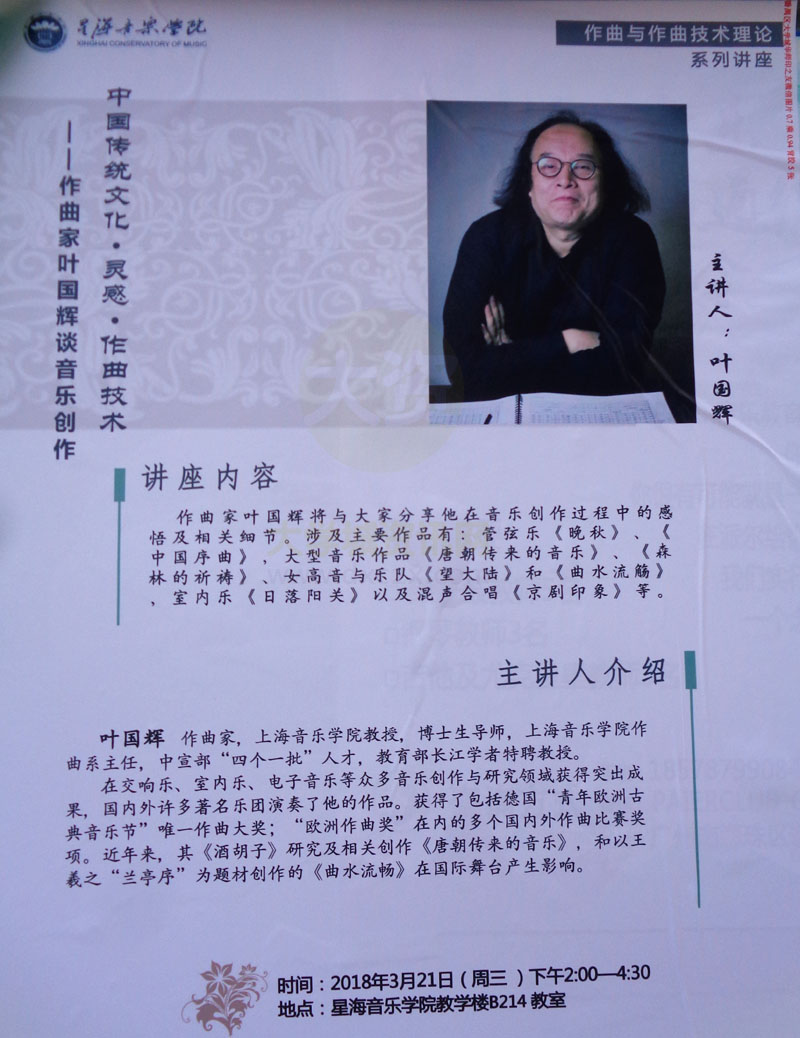 星海音乐学院
XINGHAI CONSERVATORY OF MUSIC
作曲与作曲技术理论
系列讲座
中国传统文化·灵感·作曲技术
——作曲家叶国辉谈音乐创作
主讲人：叶国辉
讲座内容
作曲家叶国辉将与大家分享他在音乐创作过程中的感
悟及相关细节。涉及主要作品有：管弦乐《晚秋》、《
中国序曲》，大型音乐作品《唐朝传来的音乐》、《森
林的祈祷》、女高音与乐队《望大陆》和《曲水流觞》
，室内乐《日落阳关》以及混声合唱《京剧印象》等。
主讲人介绍
叶国辉 作曲家，上海音乐学院教授，博士生导师，上海音乐学院作
曲系主任，中宣部“四个一批”人才，教育部长江学者特聘教授。
在交响乐、室内乐、电子音乐等众多音乐创作与研究领域获得突出成
果，国内外许多著名乐团演奏了他的作品。获得了包括德国“青年欧洲古
典音乐节”唯一作曲大奖；“欧洲作曲奖”在内的多个国内外作曲比赛奖
项。近年来，其《酒胡子》研究及相关创作《唐朝传来的音乐》，和以王
羲之“兰亭序”为题材创作的《曲水流畅》在国际舞台产生影响。
时间：2018年3月21日（周三 ）下午2:00—4:30
地点：星海音乐学院教学楼B214 教室